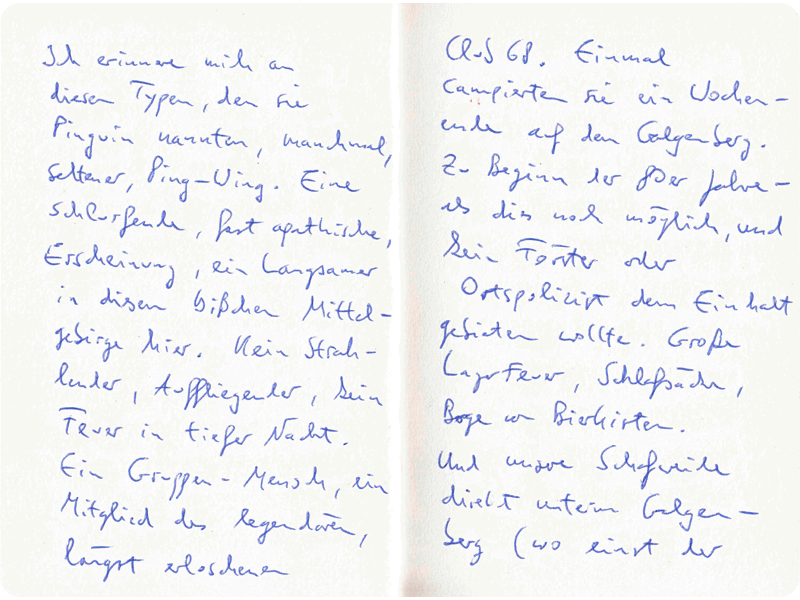 Ich erinnere mich an
diesen Typen, den sie
Pinguin nannten, manchmal,
seltener, Ping-Uing. Eine
schlurfende, fast apathische,
Erscheinung, ein Langsamer
in diesem bißchen Mittel-
gebirge hier. Kein Strah-
lender, Auffliegender, kein
Feuer in tiefer Nacht.
Ein Gruppen-Mensch, ein
Mitglied des legendären,
längst erloschenen
Club 68. Einmal
campierten sie ein Wochen-
ende auf dem Galgenberg.
Zu Beginn der 80er Jahre -
als dies noch möglich, und
kein Förster oder
Ortspolizist dem Einhalt
gebieten wollte. Große
Lagerfeuer, Schlafsäcke,
Berge von Bierkisten.
Und unsere Schafweide
direkt unterm Galgen-
berg (wo einst der